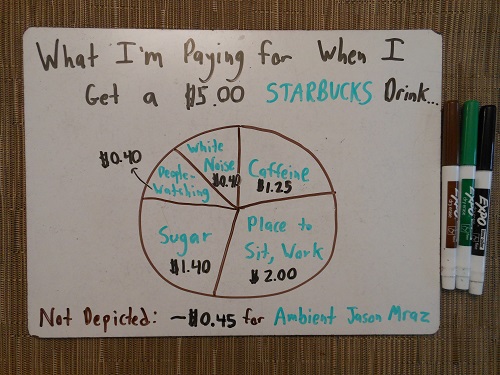 What I'm Paying for When I
Get a $5.00 STARBUCKS Drink...
$0.40
White
Noise
$0.40
Caffeine
$1.25
People-
Watching
Sugar
$1.40
Place to
Sit, Work
$2.00
Not Depicted: -$0.45 for Ambient Jason Mraz
EXPO
EXPO
EXPO